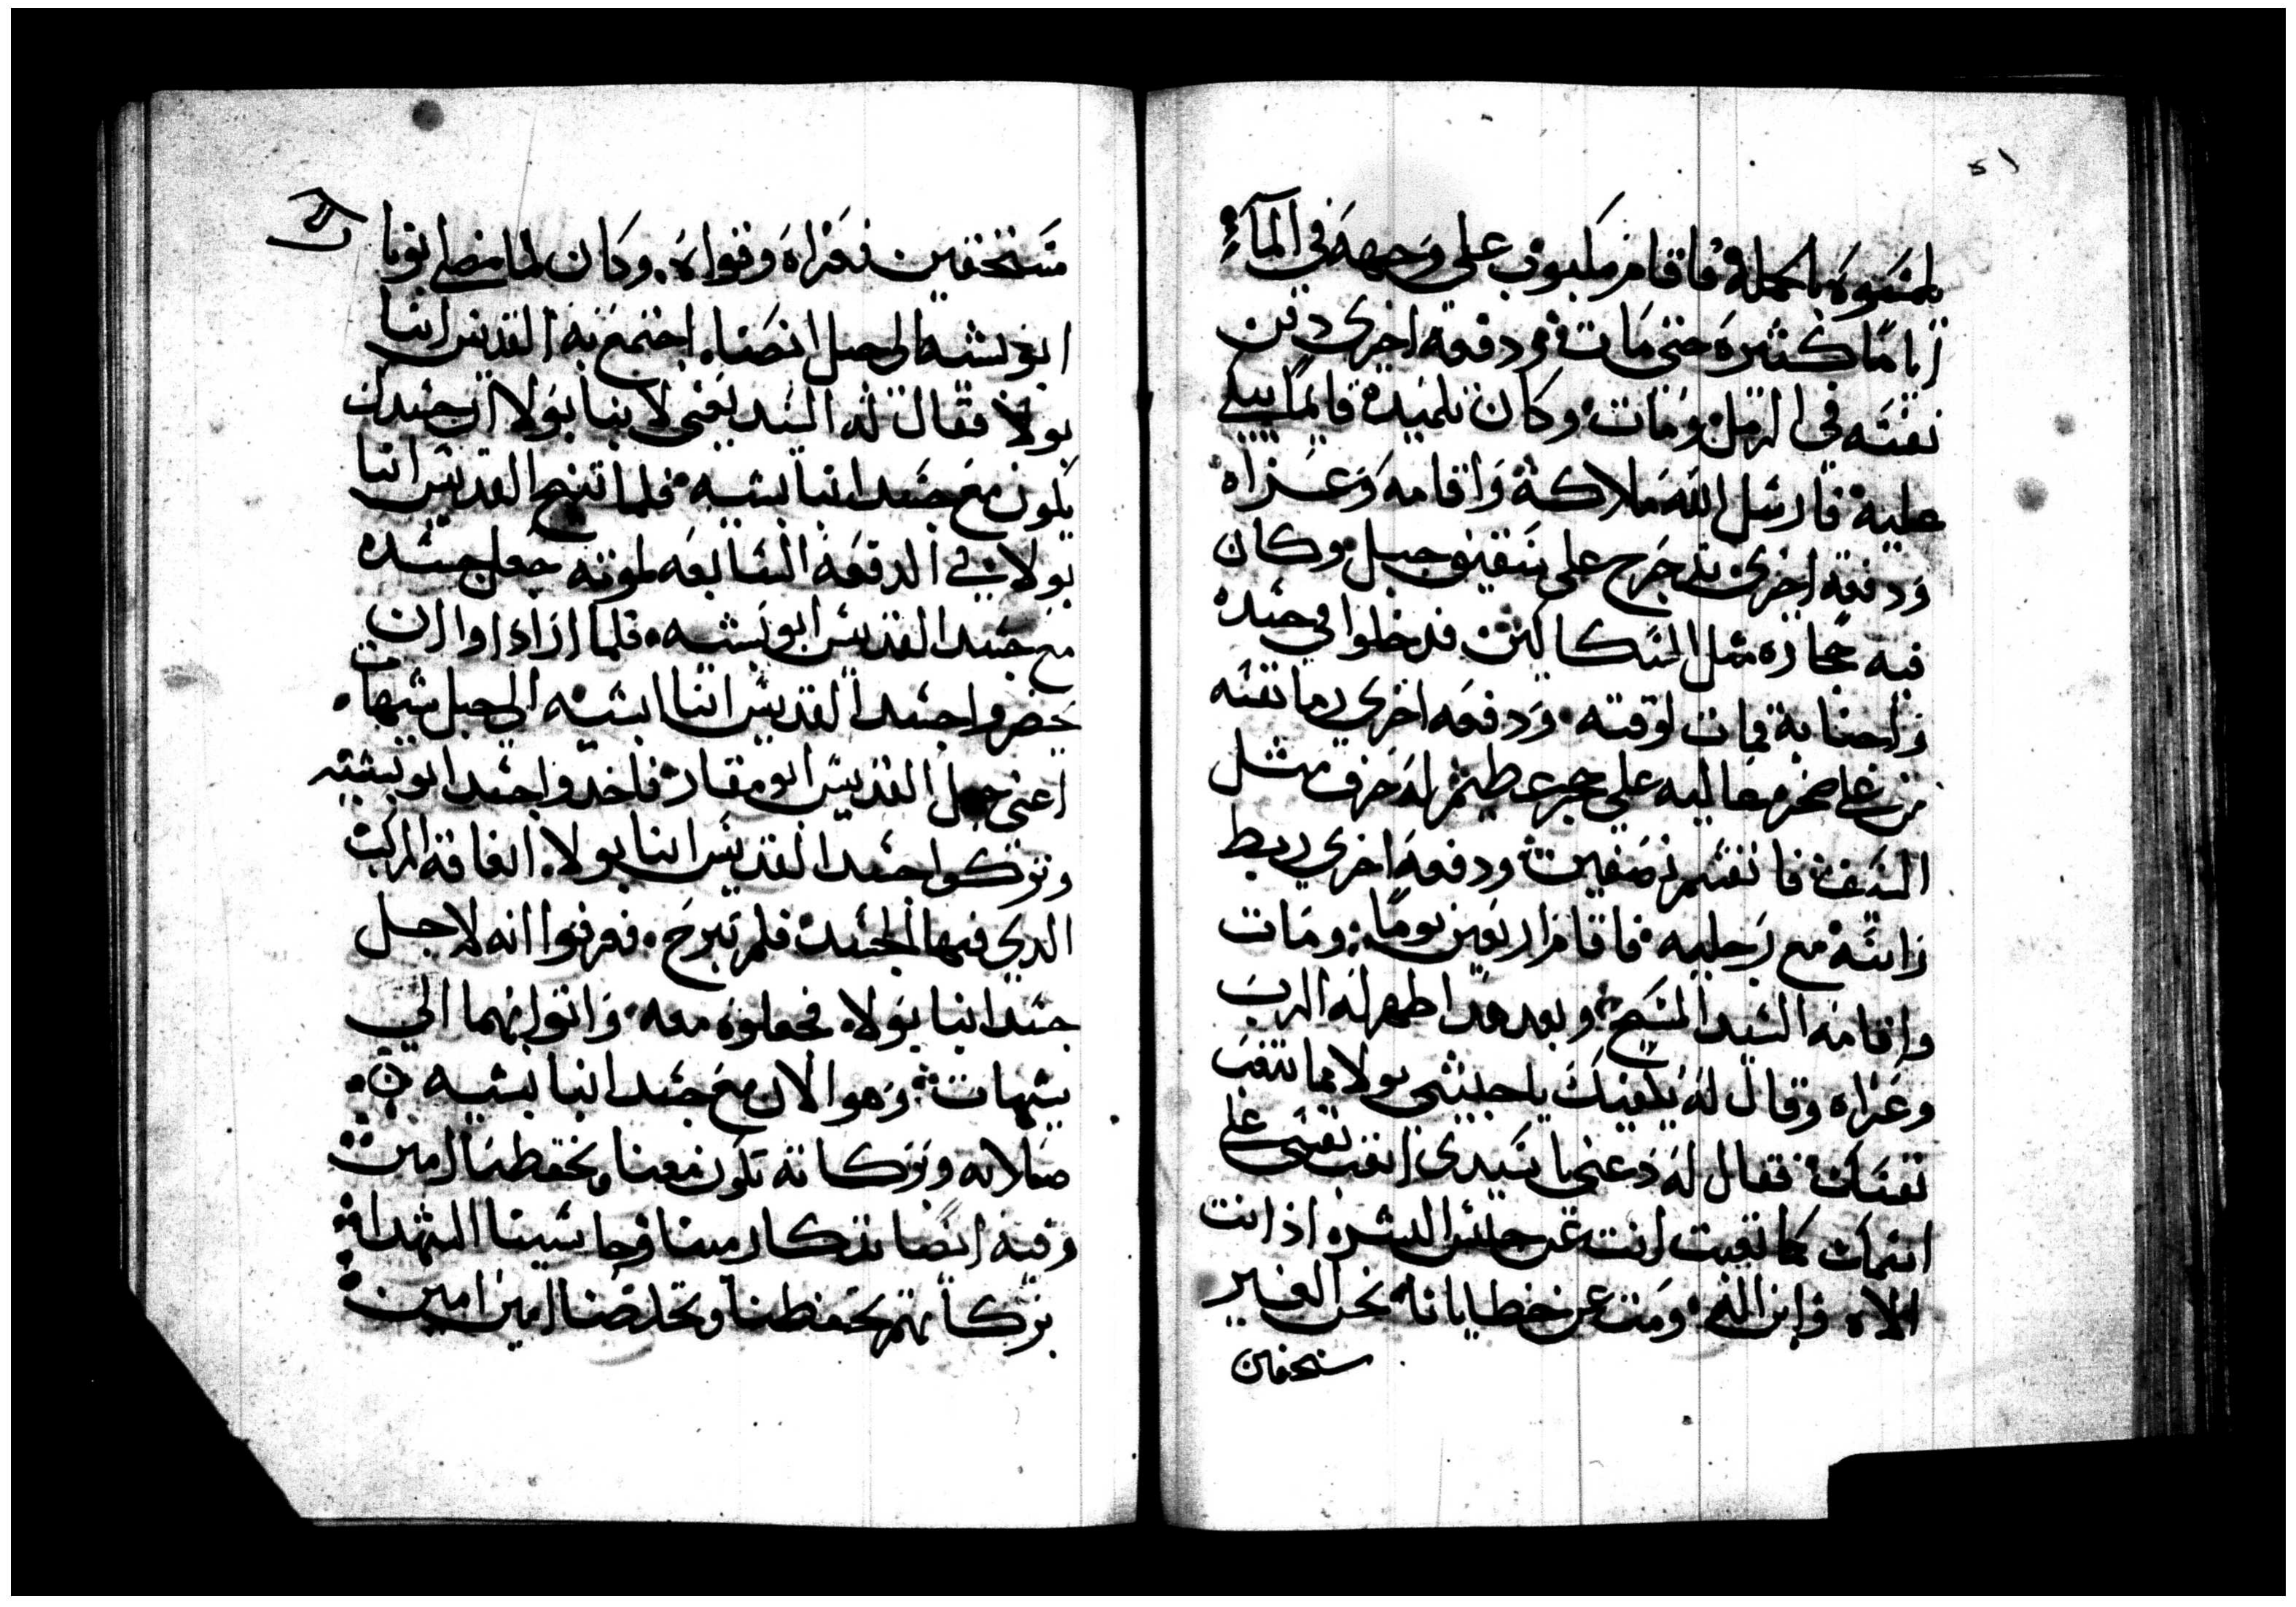 ٥١
بلمسوه بالجمله فاقام مكبوب على وجهه في المآء
اياماً كثيره حتى مات ودفعه اخرى دفن
نفسه في الرمل ومات وكان تلميده قايماً يبكي
عليه فارسل الله ملاكه واقامه وعزاه
ودفعه اخرى تدحرج على شقيف جبل وكان
فيه حجاره مثل السكاكين فدخلوا في جسده
واحشايه فمات لوقته ودفعه اخرى رما نفسه
من على صخره عاليه على حجر عظيم له حرف مثل
السيف فانقسم نصفين ودفعه اخرى ربط
راسه مع رجليه فاقام اربعين يوماً ومات
واقامه السيد المسيح وبعد هدا اظهر له الرب
وعزاه وقال له يكفيك ياحبيبي بولا ما تتعب
نفسك فقال له دعني يا سيدي اتعب نفسي على
اسمك كما تعبت انت عن جنس البشر اذ انت
الاه وابن الله ومت عن خطايانا نحن الغير
مستحقين
مستحقين فعزاه وقواه وكان لما مضى ابونا
ابو بشيه الى جبل انصنا اجتمع به القديس انبا
بولا فقال له السيد يعني لانبا بولا ان جسدك
يكون مع جسد انبا بشيه فلما تنيح القديس انبا
بولا في الدفعه السابعه لموته جعل جسده
مع جسد القديس ابو بشيه فلما ارادوا ان
يحضروا جسد القديس انبا ابشيه الى جبل شيهات
اعني جبل القديس ابو مقار فاخدوا جسد ابو بشيه
وتركوا جسد القديس انبا بولا اتفاقه المركب
الدي فيها الجسد فلم تبرح فعرفوا انه لاجل
جسد انبا بولا فحملوه معه واتوا بهما الى
شيهات وهو الان مع جسد انبا بشيه
صلاته وبركاته تكون معنا وتحفظنا امين
وفيه ايضا تدكار مينا وحاسينا الشهداء
بركاتهم تحفظنا وتخلصنا امين امين